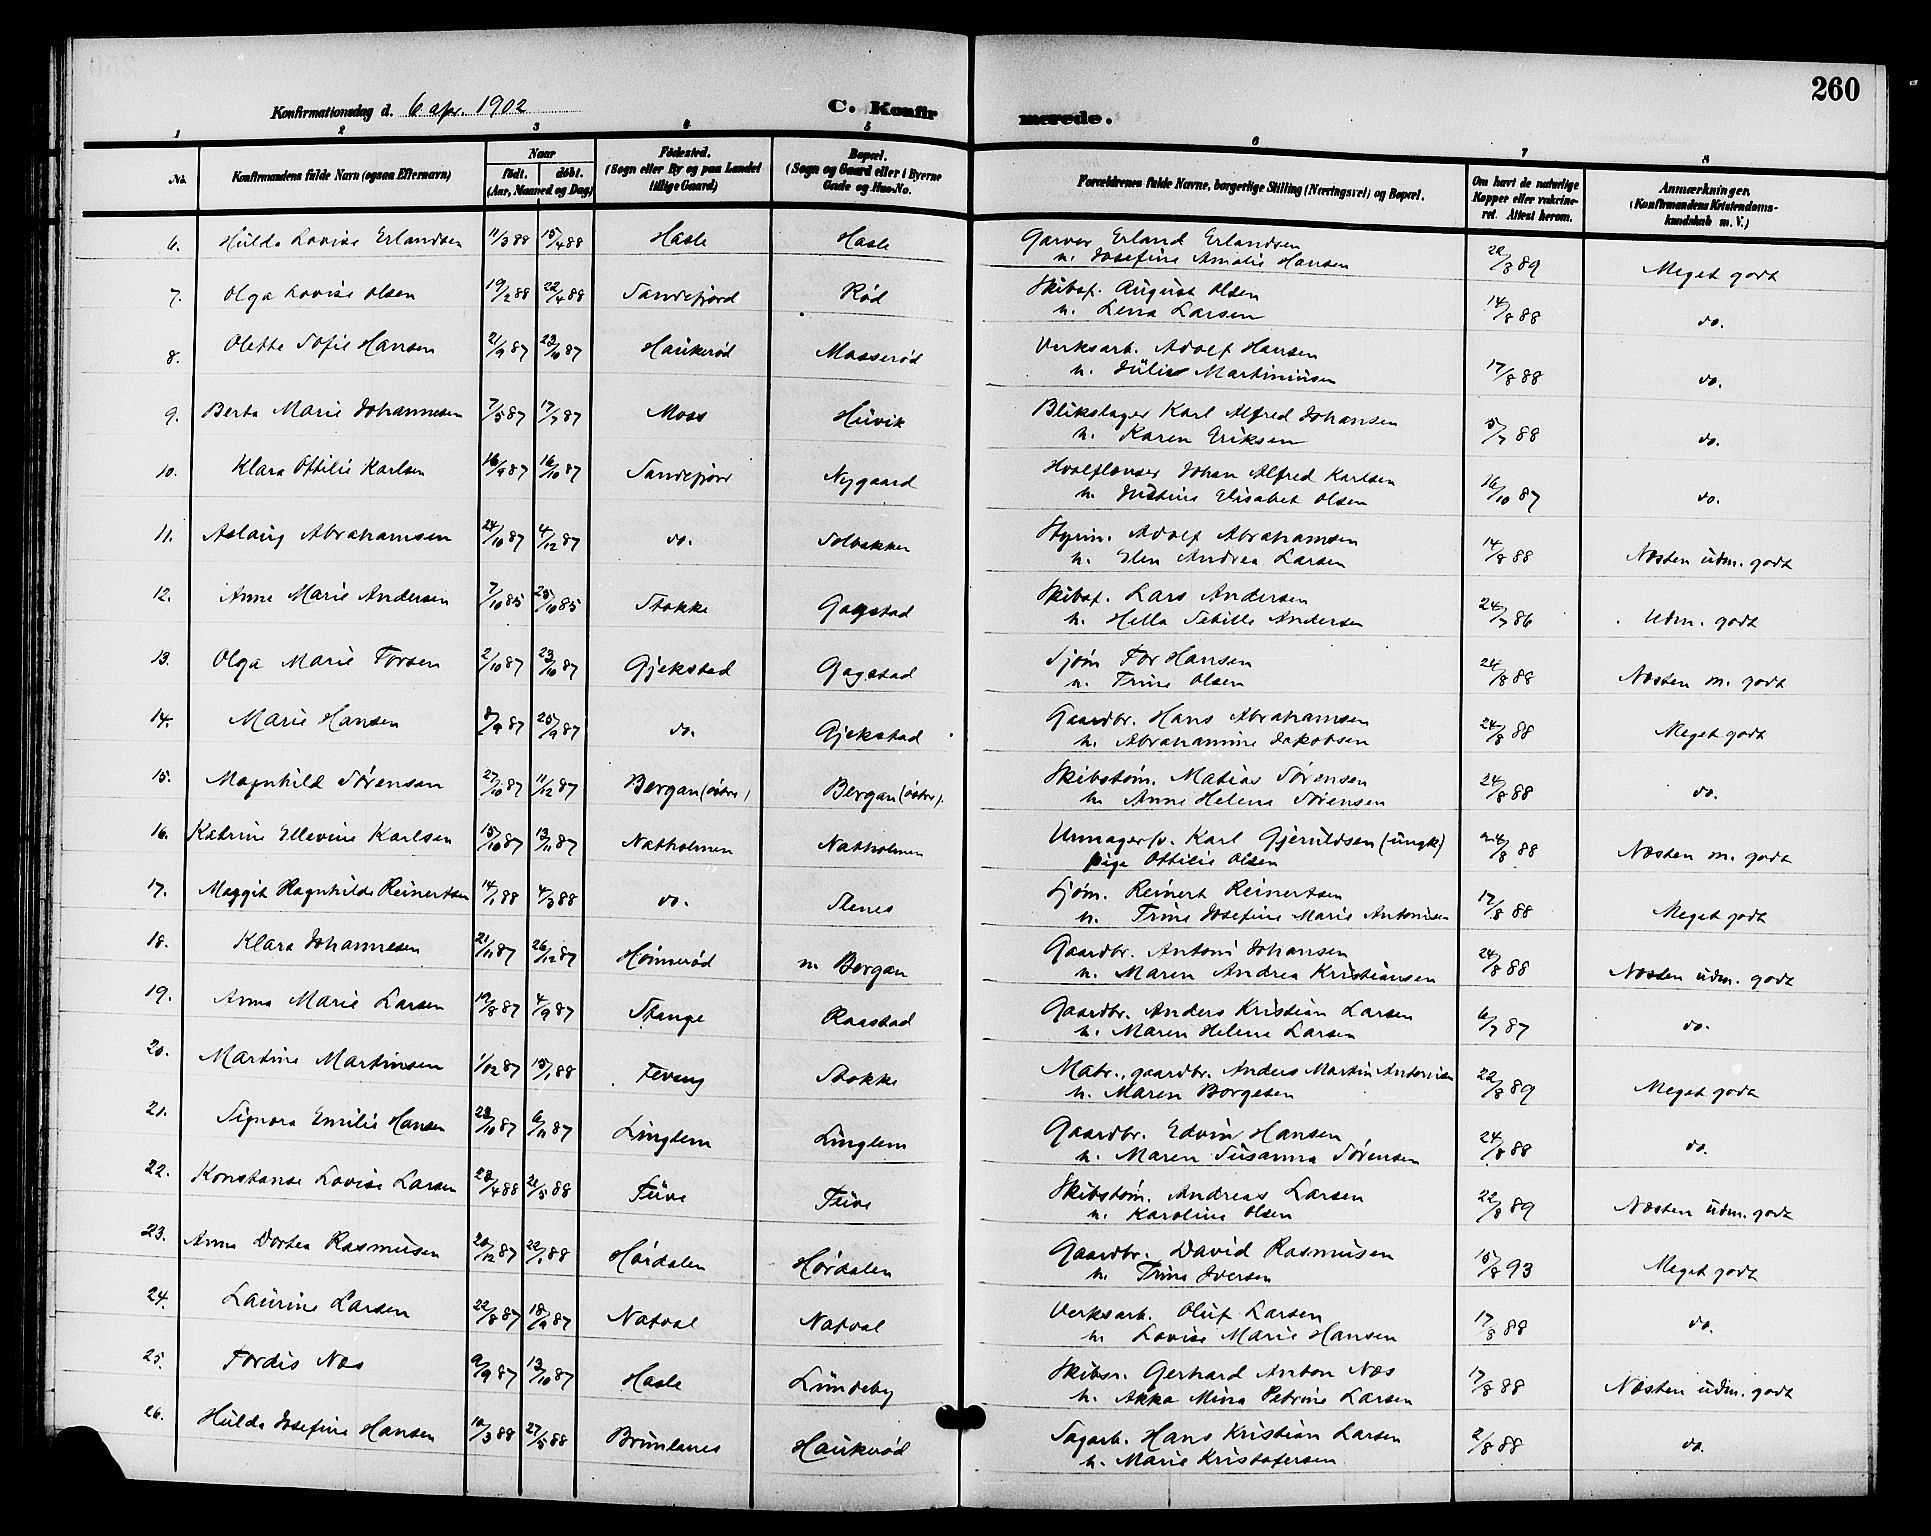 260
Konfirmationsdag d. 6 apr. 1902
C. Konfirmerede.
1 2 3 4 5 6 7 8
No. Konfirmandens fulde Navn (ogsaa Efternavn) Naar født. døbt. (Aar, Maaned og Dag) Fødested. (Sogn eller By og paa Landet tillige Gaard) Bopæl. (Sogn og Gaard eller i Byerne Gade og Hus-No. Forældrenes fulde Navne, borgerlige Stilling (Næringsvei) og Bopæl. Om havt de naturlige Kopper eller vakcineret. Attest herom. Anmærkninger. (Konfirmandens Kristendomskundskab m. V.)
6. Hulda Lovise Erlandsen 11/3 88 15/4 88 Hasle Hasle Garver Erland Erlandsen
h. Josefine Amalie Hansen 89 Meget godt
7. Olga Lovise Olsen 19/2 88 22/4 88 Sandefjord Rød Skibsf. August Olsen
h. Lena Larsen 14/8 88 do.
8. Olette Sofie Hansen 21/9 87 23/10 87 Haukerød Mosserød Verksarb. Adolf Hansen
h. Julie Martiniusen 17/8 88 do.
9. Berta Marie Johannesen 7/5 87 17/7 87 Moss Huvik Blikslager Karl Alfred Johansen
h. Karen Eriksen 5/7 88 do.
10. Klara Ottilie Karlsen 16/9 87 16/10 87 Sandefjord Nygaard Hvalflenser Johan Alfred Karlsen
h. Justine Elisabet Olsen 16/10 87 do.
11. Aslaug Abrahamsen 24/10 87 4/12 87 do. Solbakken Styrm. Adolf Abrahamsen
h. Elen Andrea Larsen 14/8 88 Næsten udm. godt
12. Anne Marie Andersen 7/10 85 25/10 85 Stokke Gogstad Skibsf. Lars Andersen
h. Hella Sebille Andersen 24/7 86 Udm. godt
13. Olga Marie Torsen 2/10 87 23/10 87 Gjekstad Gogstad Sjøm Tor Hansen
h. Trine Olsen 24/8 88 Næsten m. godt
14. Marie Hansen 8/9 87 25/9 87 do. Gjekstad Gaardbr. Hans Abrahamsen
h. Abrahamine Jakobsen 24/8 88 Meget godt
15. Magnhild Sørensen 27/10 87 11/12 87 Bergan (østre) Bergan (østre). Skibstøm. Matias Sørensen
h. Anne Helene Sørensen 24/8 88 do.
16. Katrine Ellevine Karlsen 15/10 87 13/11 87 Natholmen Natholmen Urmagersv. Karl Gjeruldsen (ungk)
pige Ottilie Olsen 24/8 88 Næsten m. godt
17. Maggit Ragnhilde Reinertsen 14/1 88 4/3 88 do. Stenes Sjøm. Reinert Reinertsen
h. Trine Josefine Marie Antonisen 17/8 88 Meget godt
18. Klara Johannesen 21/11 87 26/12 87 Hønnerød m Bergan Gaardbr. Antoni Johansen
h. Maren Andrea Kristiansen 24/8 88 Næsten udm. godt
19. Anna Marie Larsen 19/8 87 4/9 87 Stange Raastad Gaardbr. Anders Kristian Larsen
h. Maren Helene Larsen 6/7 87 do.
20. Martine Martinsen 1/12 87 15/1 88 Feveng Stokke Matr., gaardbr. Anders Martin Antonisen
h. Maren Borgesen 22/8 89 Meget godt
21. Signora Emilie Hansen 23/10 87 6/11 87 Lingelem Lingelem Gaardbr. Edvin Hansen
h. Maren Susanna Sørensen 24/8 88 do.
22. Konstanse Lovise Larsen 23/4 88 21/5 88 Tuve Tuve Skibstøm. Andreas Larsen
h. Karoline Olsen 22/8 89 Næsten udm. godt
23. Anna Dortea Rasmusen 20/12 87 22/1 88 Hørdalen Hørdalen Gaardbr. David Rasmusen
h. Trine Iversen 15/8 93 Meget godt
24. Laurine Larsen 22/8 87 18/9 87 Natval Natval Verksarb. Oluf Larsen
h. Lovise Marie Hansen 17/8 88 do.
25. Tordis Næs 9/9 87 13/10 87 Hasle Lundeby Skibsr. Gerhard Anton Næs
h. Akka Mina Petrine Larsen 17/8 88 Næsten udm. godt
26. Hulda Josefine Hansen 10/3 88 27/5 88 Brunlanes Haukerød Sagarb. Hans Kristian Larsen
h. Marie Kristofersen 2/8 88 do.